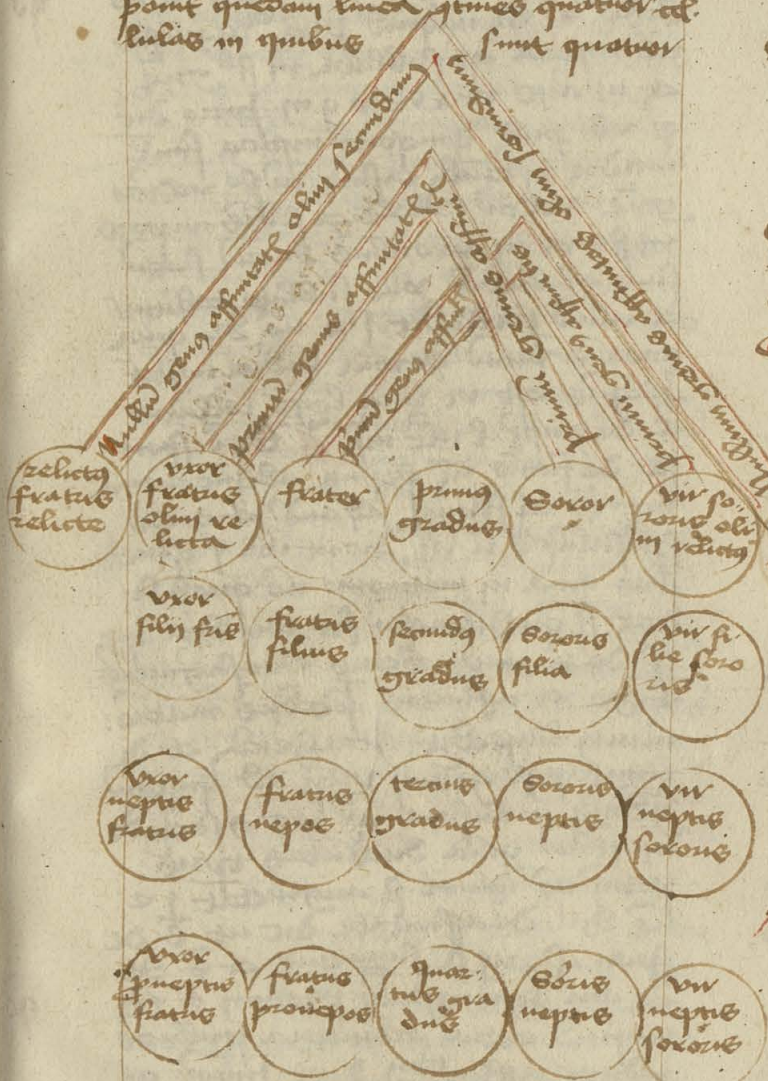 ponit quedam linea qtines quatuor cel-
lulas in quibus sunt quatuor
Nullū genꝰ affinitatꝭ olim secundum
primū genus affinitatꝭ
pimū genꝰ affini
primū genus affini
primū genꝰ affinita
Nullum genus affinitatis olim secundum
relictꝰ
fratris
relicte
vxor
fratris
olim re
licta
frater
primꝰ
gradus
Soror
vir so-
roris oli
m relictꝰ
vxor
filij fris
fratris
filius
secundꝰ
gradus
Sororis
filia
vir fi
lie soro
ris
vxor
neptis
fratris
fratris
nepos
tercius
gradus
Sororis
neptis
vir
neptis
sororis
vxor
pneptis
fratris
fratris
pronepos
Quar-
tus gra
dus
Soris
neptis
vir
neptis
sororis